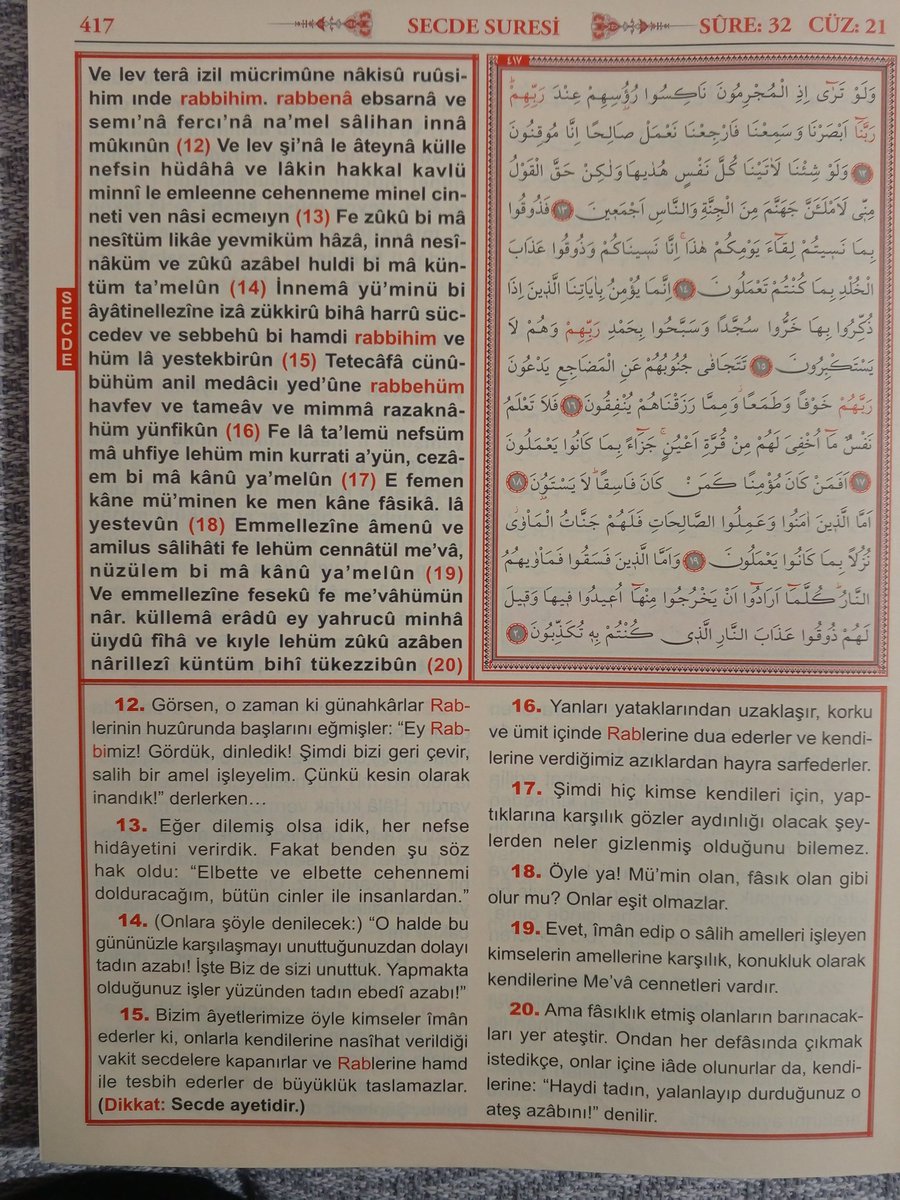 417 SECDE SURESİ SÛRE: 32 CÜZ: 21
Ve lev terâ izil mücrimûne nâkisû ruûsi-
him ınde rabbihim. rabbenâ ebsarnâ ve
semı’nâ ferci’nâ na’mel sâlihan innâ
mûkınûn (12) Ve lev şi’nâ le âteynâ külle
nefsin hüdâhâ ve lâkin hakkal kavlü
minnî le emleenne cehenneme minel cin-
neti ven nâsi ecmeıyn (13) Fe zûkû bi mâ
nesîtüm likâe yevmiküm hâzâ, innâ nesî-
nâküm ve zûkû azâbel huldi bi mâ kün-
tüm ta’melûn (14) İnnemâ yü’minü bi
âyâtinellezîne izâ zükkirû bihâ harrû süc-
cedev ve sebbehû bi hamdi rabbihim ve
hüm lâ yestekbirûn (15) Tetecâfâ cünû-
bühüm anil medâciı yed’ûne rabbehüm
havfev ve tameâv ve mimmâ razaknâ-
hüm yünfikûn (16) Fe lâ ta’lemü nefsüm
mâ uhfiye lehüm min kurrati a’yün, cezâ-
em bi mâ kânû ya’melûn (17) E femen
kâne mü’minen ke men kâne fâsikâ. lâ
yestevûn (18) Emmellezîne âmenû ve
amilus sâlihâti fe lehüm cennâtül me’vâ,
nüzülem bi mâ kânû ya’melûn (19)
Ve emmellezîne fesekû fe me’vâhümün
nâr. küllemâ erâdû ey yahrucû minhâ
üıydû fîhâ ve kıyle lehüm zûkû azâben
nârillezî küntüm bihî tükezzibûn (20)
SECDE
٤١٧
وَلَوْ تَرٰٓى اِذِ الْمُجْرِمُونَ نَاكِسُوا رُؤُ۫سِهِمْ عِنْدَ رَبِّهِمْۜ
رَبَّنَٓا اَبْصَرْنَا وَسَمِعْنَا فَارْجِعْنَا نَعْمَلْ صَالِحًا اِنَّا مُوقِنُونَ
﴿١٢﴾ وَلَوْ شِئْنَا لَاٰتَيْنَا كُلَّ نَفْسٍ هُدٰيهَا وَلٰكِنْ حَقَّ الْقَوْلُ
مِنّ۪ي لَاَمْلَـَٔنَّ جَهَنَّمَ مِنَ الْجِنَّةِ وَالنَّاسِ اَجْمَع۪ينَ ﴿١٣﴾ فَذُوقُوا
بِمَا نَس۪يتُمْ لِقَٓاءَ يَوْمِكُمْ هٰذَاۚ اِنَّا نَس۪ينَاكُمْ وَذُوقُوا عَذَابَ
الْخُلْدِ بِمَا كُنْتُمْ تَعْمَلُونَ ﴿١٤﴾ اِنَّمَا يُؤْمِنُ بِاٰيَاتِنَا الَّذ۪ينَ اِذَا
ذُكِّرُوا بِهَا خَرُّوا سُجَّدًا وَسَبَّحُوا بِحَمْدِ رَبِّهِمْ وَهُمْ لَا
يَسْتَكْبِرُونَ ﴿١٥﴾ تَتَجَافٰى جُنُوبُهُمْ عَنِ الْمَضَاجِعِ يَدْعُونَ
رَبَّهُمْ خَوْفًا وَطَمَعًاۘ وَمِمَّا رَزَقْنَاهُمْ يُنْفِقُونَ ﴿١٦﴾ فَلَا تَعْلَمُ
نَفْسٌ مَٓا اُخْفِيَ لَهُمْ مِنْ قُرَّةِ اَعْيُنٍۚ جَزَٓاءً بِمَا كَانُوا يَعْمَلُونَ
﴿١٧﴾ اَفَمَنْ كَانَ مُؤْمِنًا كَمَنْ كَانَ فَاسِقًاۜ لَا يَسْتَوُ۫نَ ﴿١٨﴾
اَمَّا الَّذ۪ينَ اٰمَنُوا وَعَمِلُوا الصَّالِحَاتِ فَلَهُمْ جَنَّاتُ الْمَأْوٰىۘ
نُزُلًا بِمَا كَانُوا يَعْمَلُونَ ﴿١٩﴾ وَاَمَّا الَّذ۪ينَ فَسَقُوا فَمَأْوٰيهُمُ
النَّارُۜ كُلَّمَٓا اَرَادُٓوا اَنْ يَخْرُجُوا مِنْهَٓا اُع۪يدُوا ف۪يهَا وَق۪يلَ
لَهُمْ ذُوقُوا عَذَابَ النَّارِ الَّذ۪ي كُنْتُمْ بِه۪ تُكَذِّبُونَ ﴿٢٠﴾
12. Görsen, o zaman ki günahkârlar Rab-
lerinin huzûrunda başlarını eğmişler: “Ey Rab-
bimiz! Gördük, dinledik! Şimdi bizi geri çevir,
salih bir amel işleyelim. Çünkü kesin olarak
inandık!” derlerken…
13. Eğer dilemiş olsa idik, her nefse
hidâyetini verirdik. Fakat benden şu söz
hak oldu: “Elbette ve elbette cehennemi
dolduracağım, bütün cinler ile insanlardan.”
14. (Onlara şöyle denilecek:) “O halde bu
gününüzle karşılaşmayı unuttuğunuzdan dolayı
tadın azabı! İşte Biz de sizi unuttuk. Yapmakta
olduğunuz işler yüzünden tadın ebedî azabı!”
15. Bizim âyetlerimize öyle kimseler îmân
ederler ki, onlarla kendilerine nasîhat verildiği
vakit secdelere kapanırlar ve Rablerine hamd
ile tesbih ederler de büyüklük taslamazlar.
(Dikkat: Secde ayetidir.)
16. Yanları yataklarından uzaklaşır, korku
ve ümit içinde Rablerine dua ederler ve kendi-
lerine verdiğimiz azıklardan hayra sarfederler.
17. Şimdi hiç kimse kendileri için, yap-
tıklarına karşılık gözler aydınlığı olacak şey-
lerden neler gizlenmiş olduğunu bilemez.
18. Öyle ya! Mü’min olan, fâsık olan gibi
olur mu? Onlar eşit olmazlar.
19. Evet, îmân edip o sâlih amelleri işleyen
kimselerin amellerine karşılık, konukluk olarak
kendilerine Me’vâ cennetleri vardır.
20. Ama fâsıklık etmiş olanların barınacak-
ları yer ateştir. Ondan her defâsında çıkmak
istedikçe, onlar içine iâde olunurlar da, kendi-
lerine: “Haydi tadın, yalanlayıp durduğunuz o
ateş azâbını!” denilir.